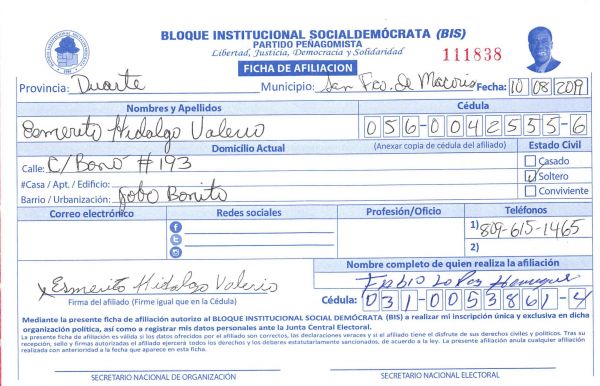 BLOQUE INSTITUCIONAL SOCIALDEMÓCRATA (BIS)
PARTIDO PEÑAGOMISTA
Libertad, Justicia, Democracia y Solidaridad
111838
FICHA DE AFILIACION
Provincia: Duarte Municipio: San Fco. de Macoris Fecha: 10/08/2019
Nombres y Apellidos Cédula
Esmerito Hidalgo Valerio 056-0042555-6
Domicilio Actual (Anexar copia de cédula del afiliado) Estado Civil
Calle: C/ Bonó # 193 Casado
#Casa / Apt. / Edificio: Soltero
Barrio / Urbanización: Jobo Bonito Conviviente
Correo electrónico Redes sociales Profesión/Oficio Teléfonos
1) 809-615-1465
2)
Nombre completo de quien realiza la afiliación
x Esmerito Hidalgo Valerio Fabio
Firma del afiliado (Firme igual que en la Cédula) Cédula: 031-0053861-4
Mediante la presente ficha de afiliación autorizo al BLOQUE INSTITUCIONAL SOCIAL DEMÓCRATA (BIS) a realizar mi inscripción única y exclusiva en dicha
organización política, así como a registrar mis datos personales ante la Junta Central Electoral.
La presente ficha de afiliación es válida si los datos ofrecidos por el afiliado son correctos, las declaraciones veraces y si el afiliado tiene el disfrute de sus derechos civiles y políticos. Tras su
recepción, sello y firmas autorizados el afiliado ejercerá todos los derechos y los deberes estatutariamente sancionados, de acuerdo a la ley. La presente afiliación anula cualquier afiliación
realizada con anterioridad a la fecha que aparece en esta ficha.
SECRETARIO NACIONAL DE ORGANIZACIÓN SECRETARIO NACIONAL ELECTORAL